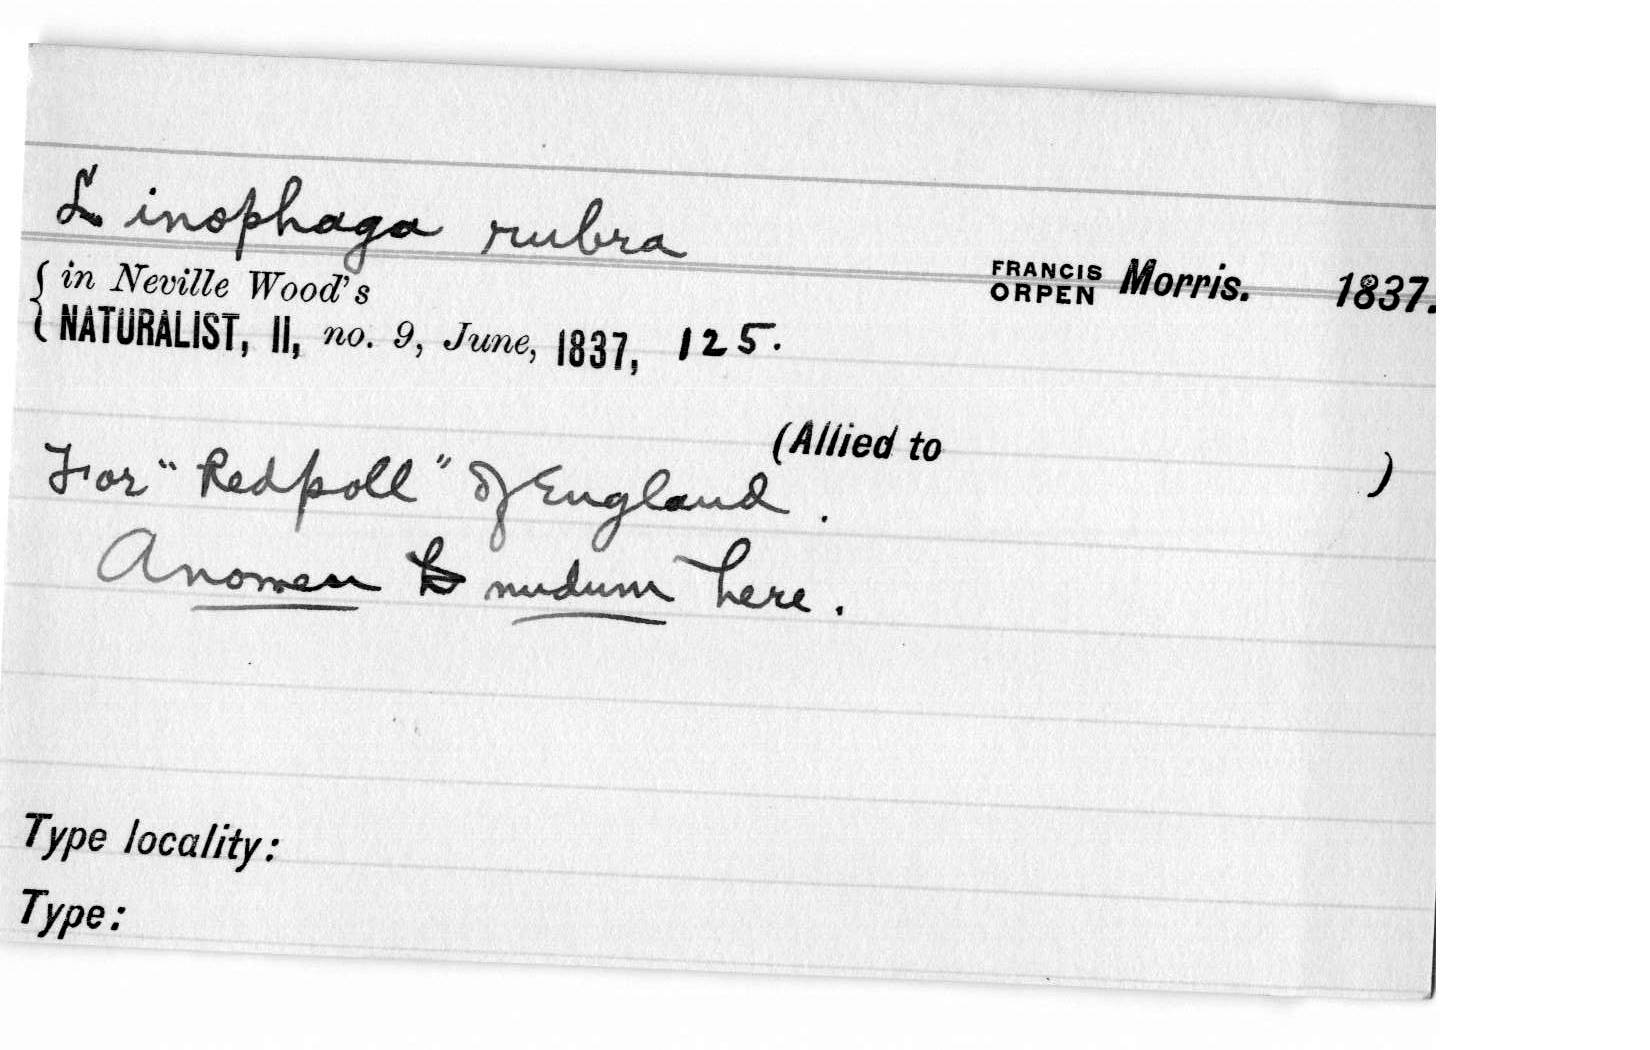 Linophaga rubra
FRANCIS ORPEN Morris. 1837.
{ in Neville Wood's
NATURALIST, II, no. 9, June, 1837, 125.
(Allied to )
For "Redpoll" of England.
A nomen nudum here.
Type locality:
Type: